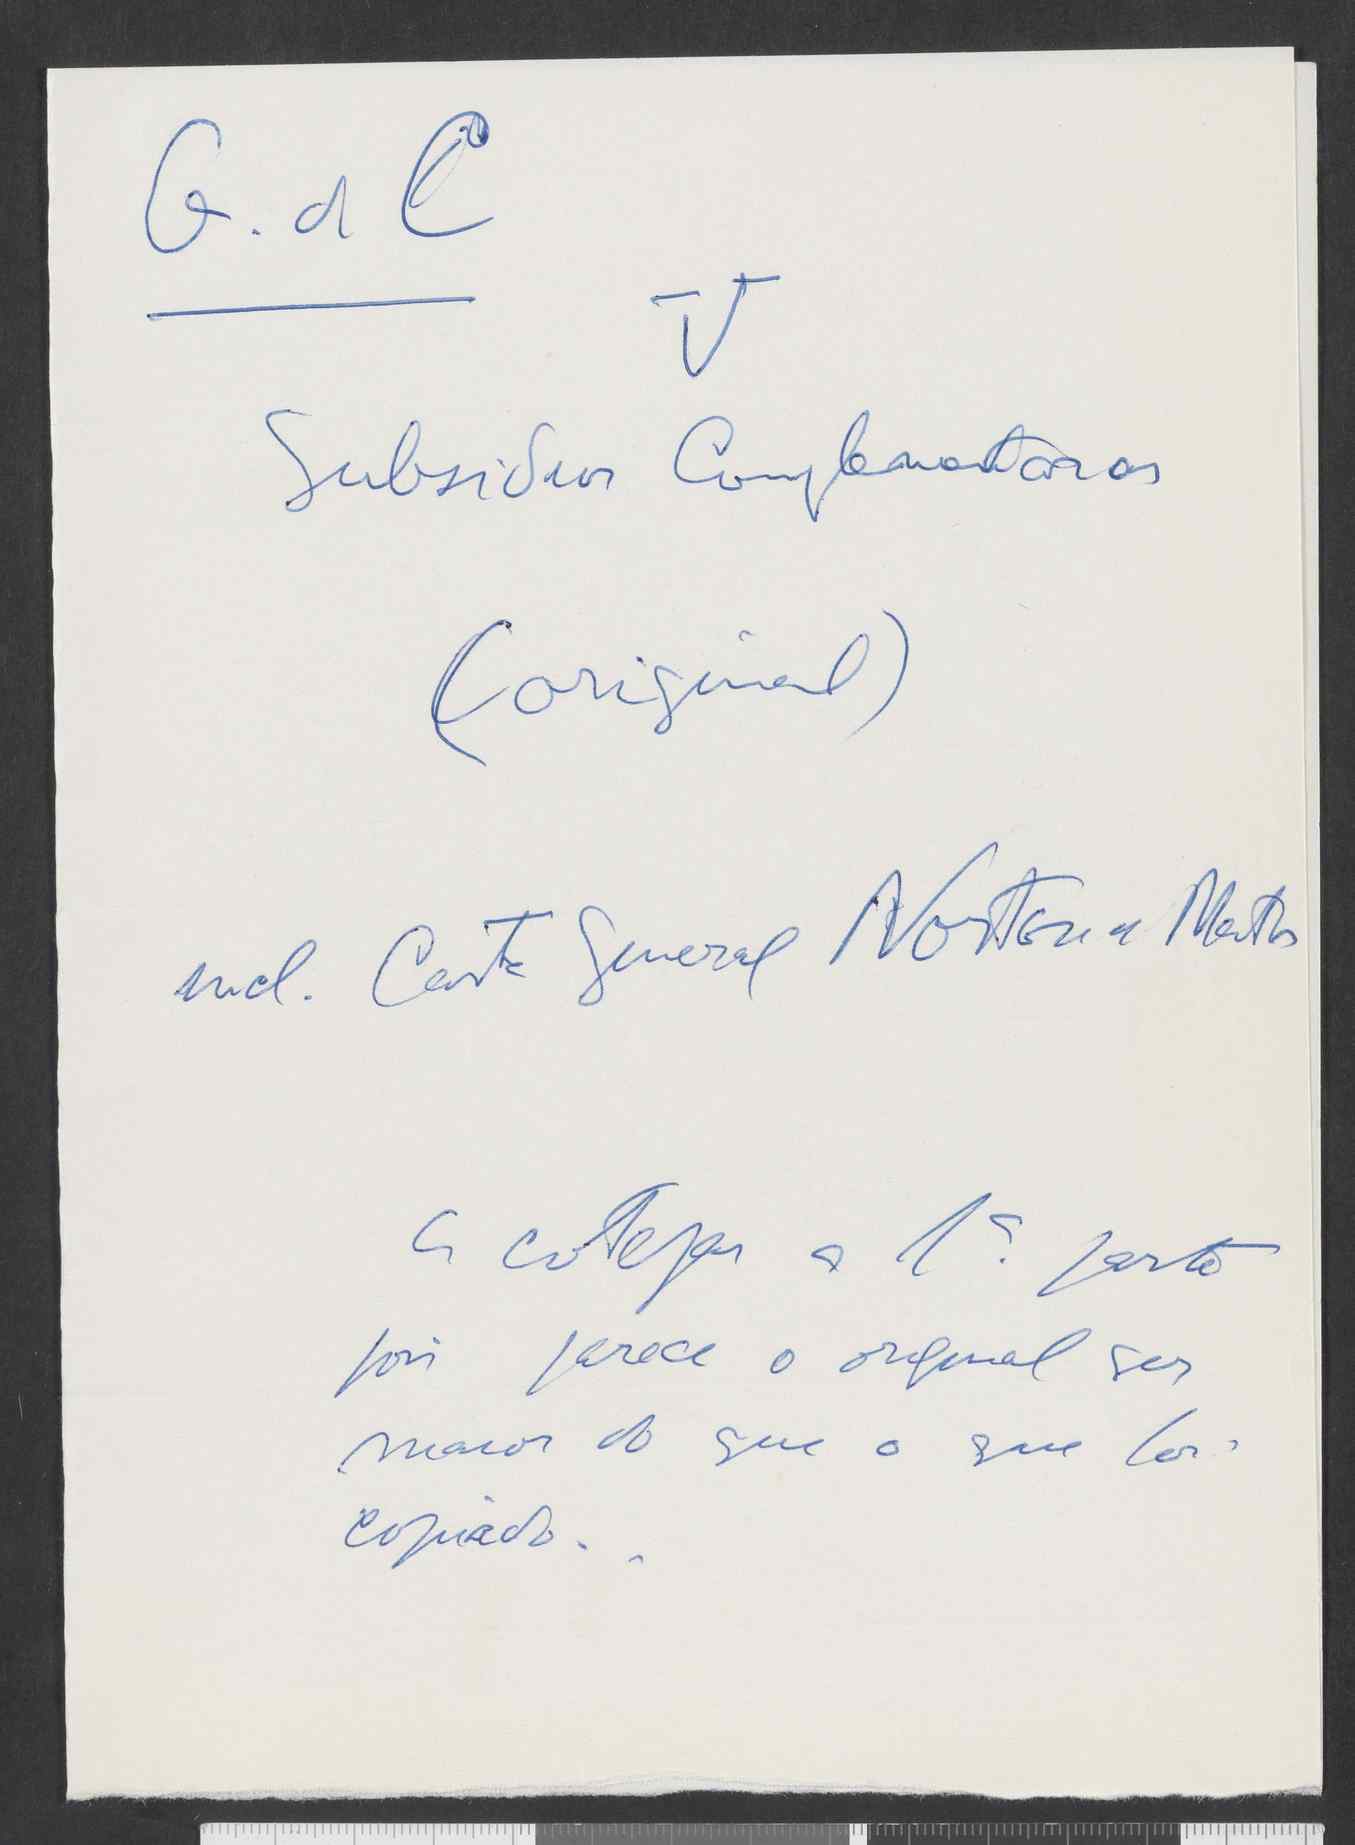 G. d C
V
Subsidios Complementares
(original)
incl. Carta General Norton de Mattos
a cotejar a 1ª. parte
pois parece o original ser
maior do que o que foi
copiado..